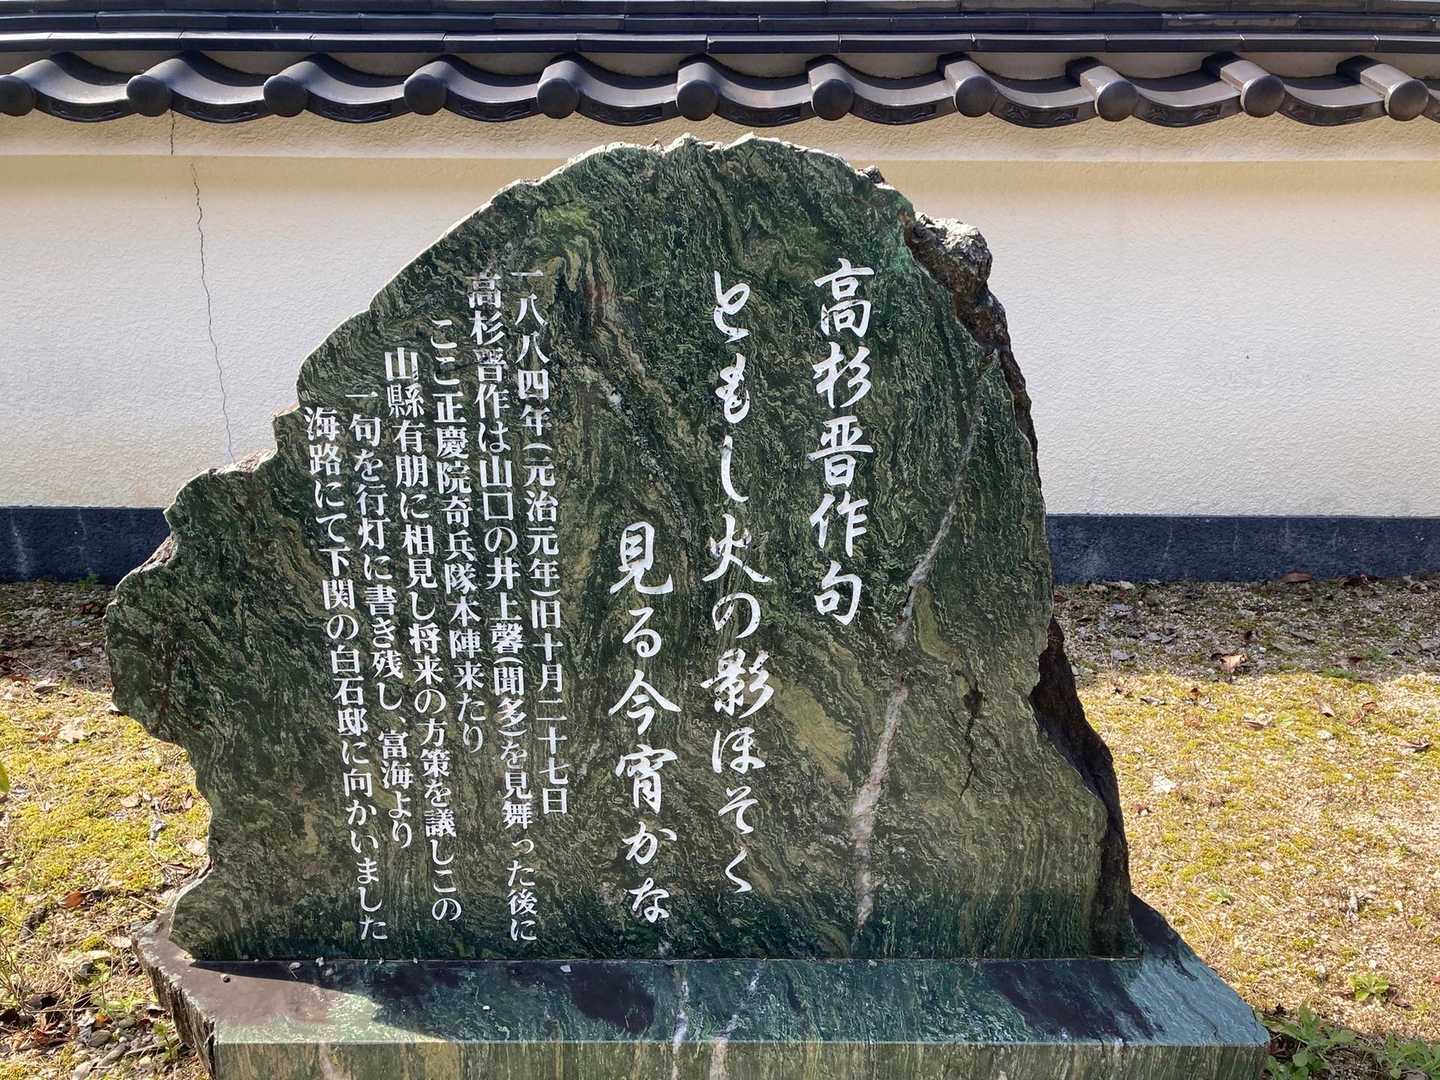 高杉晋作句
ともし火の影ほそく
見る今宵かな
一八八四年(元治元年)旧十月二十七日
高杉晋作は山口の井上馨(聞多)を見舞った後に
ここ正慶院奇兵隊本陣来たり
山縣有朋に相見し将来の方策を議しこの
一句を行灯に書き残し、富海より
海路にて下関の白石邸に向かいました